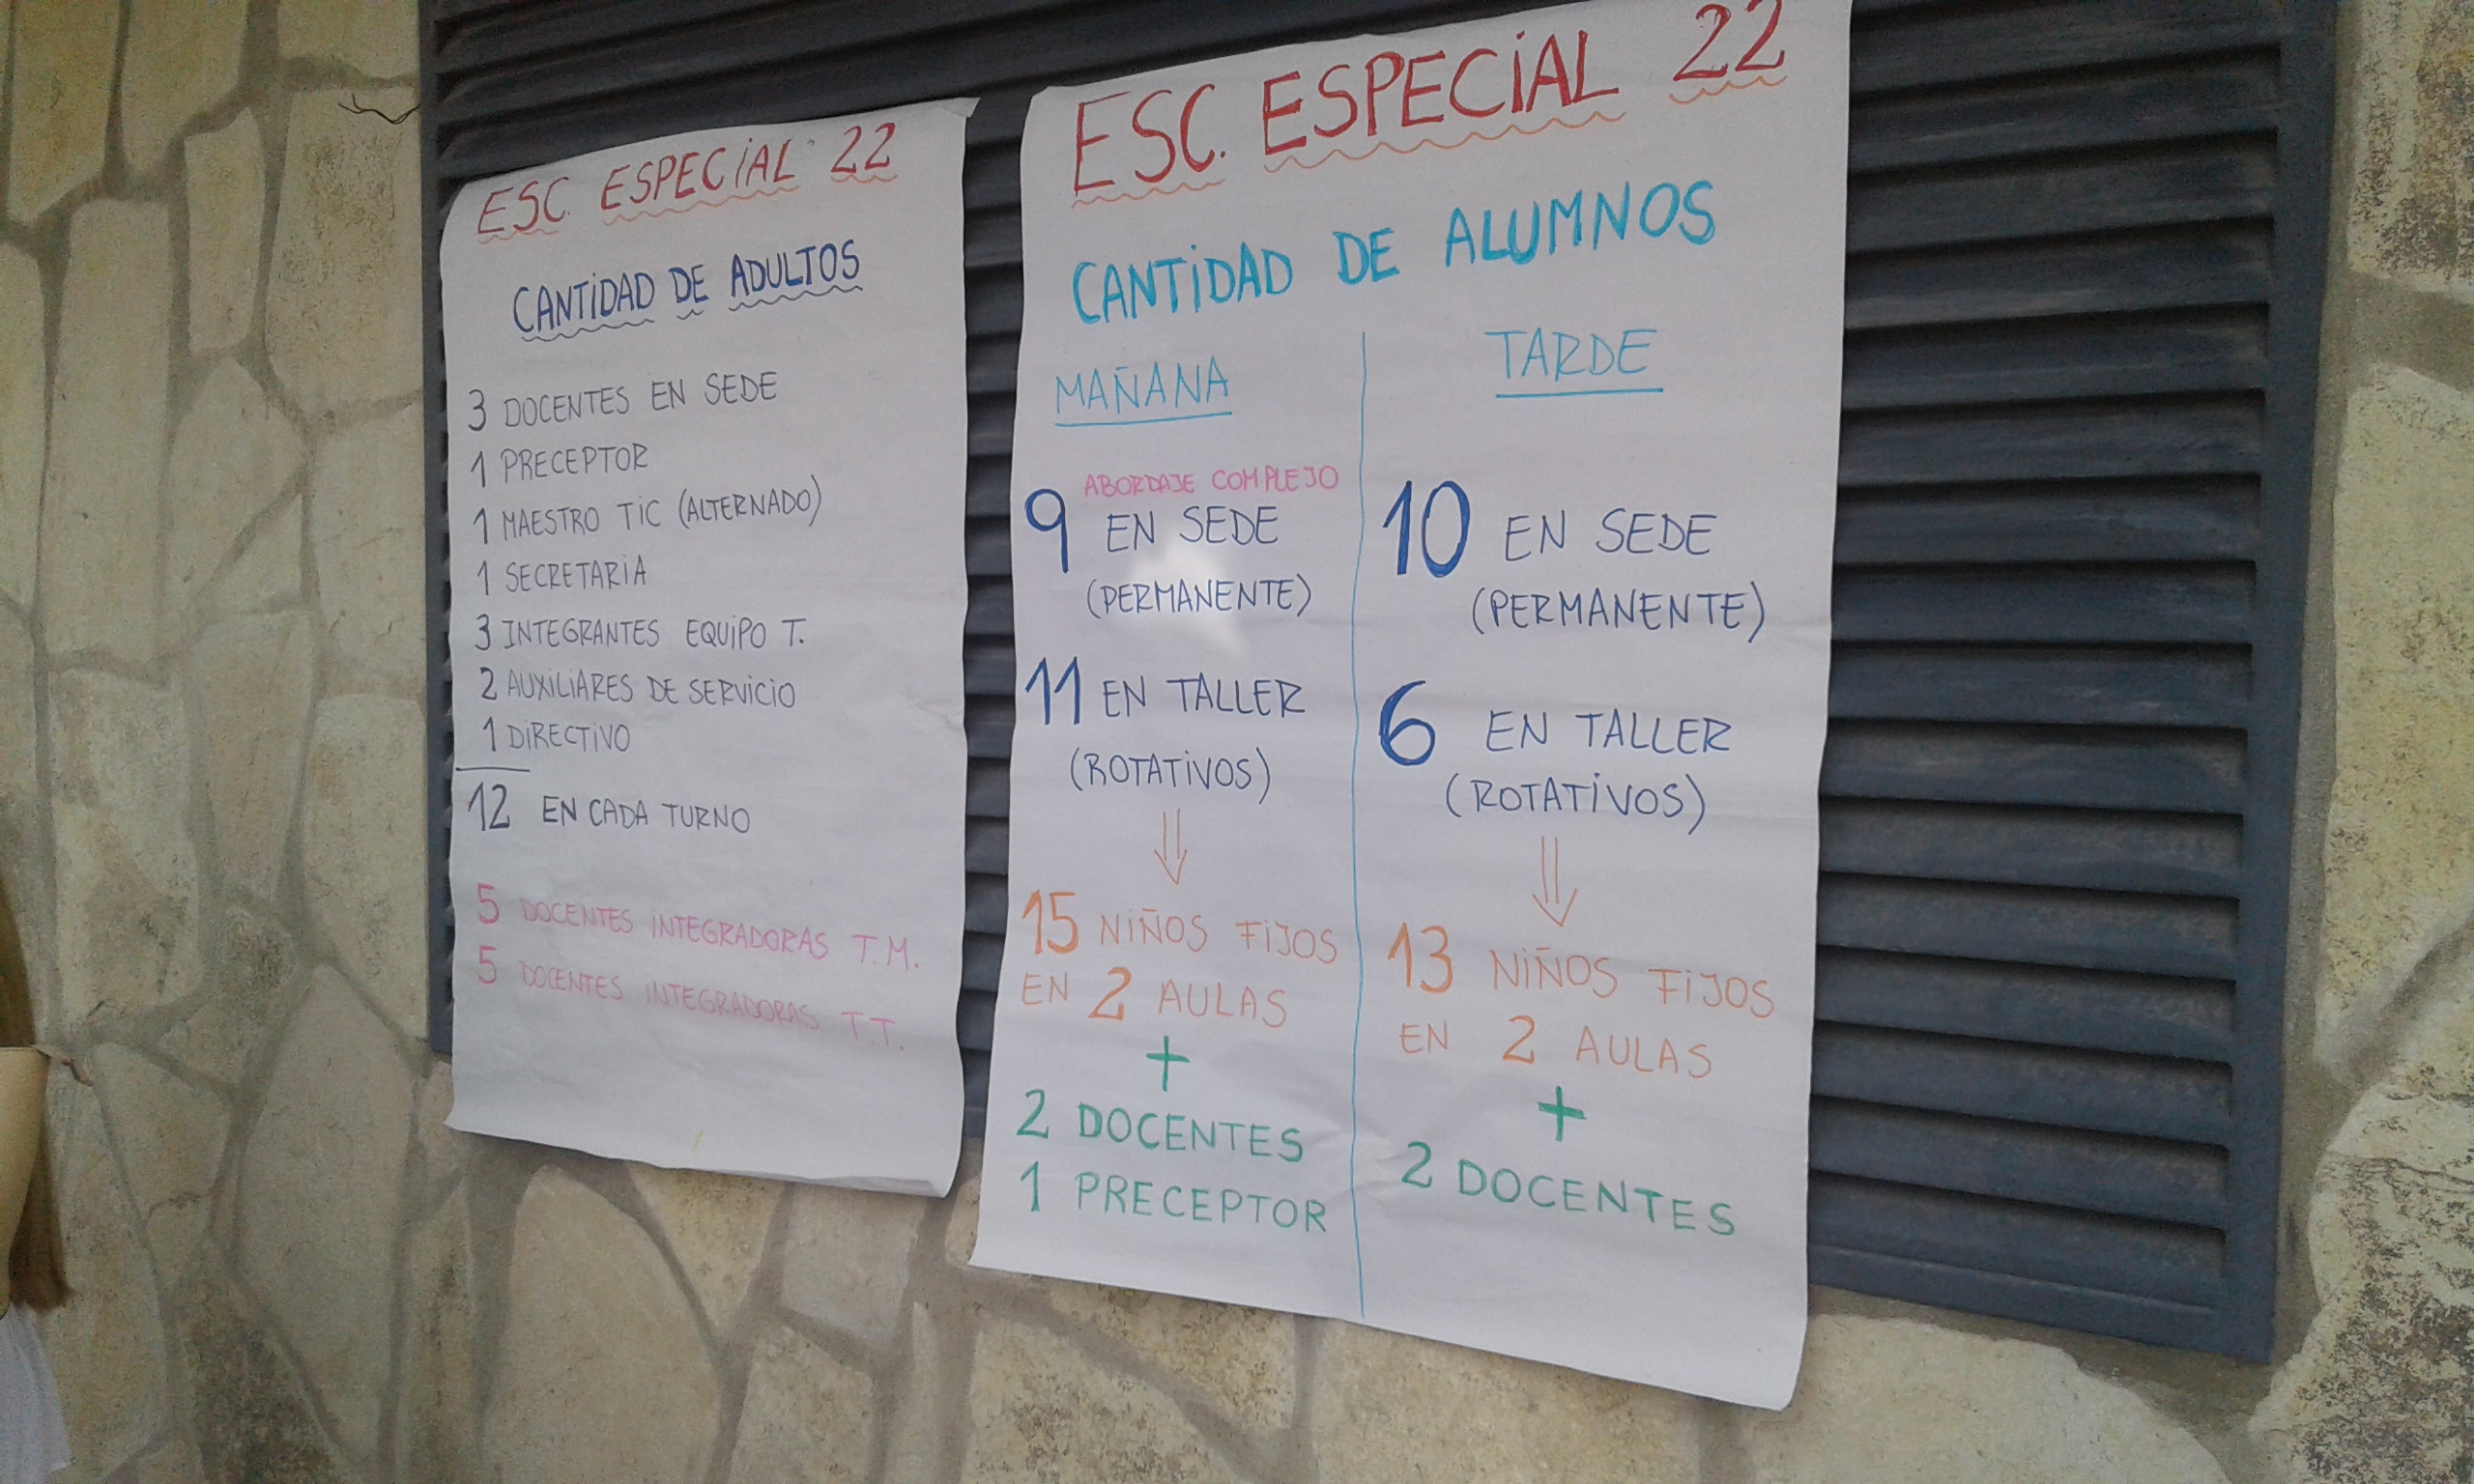 ESC. ESPECiAL 22
CANTiDAD DE ADULTOS
3 DOCENTES EN SEDE
1 PRECEPTOR
1 MAESTRO TiC (ALTERNADO)
1 SECRETARiA
3 iNTEGRANTES EQUiPO T.
2 AUXiLiARES DE SERViCiO
1 DiRECTiVO
12 EN CADA TURNO
5 DOCENTES iNTEGRADORAS T.M.
5 DOCENTES iNTEGRADORAS T.T.
ESC. ESPECiAL 22
CANTiDAD DE ALUMNOS
MAÑANA
ABORDAJE COMPLEJO
9 EN SEDE
(PERMANENTE)
11 EN TALLER
(ROTATiVOS)
15 NiÑOS FiJOS
EN 2 AULAS
+
2 DOCENTES
1 PRECEPTOR
TARDE
10 EN SEDE
(PERMANENTE)
6 EN TALLER
(ROTATiVOS)
13 NiÑOS FiJOS
EN 2 AULAS
+
2 DOCENTES